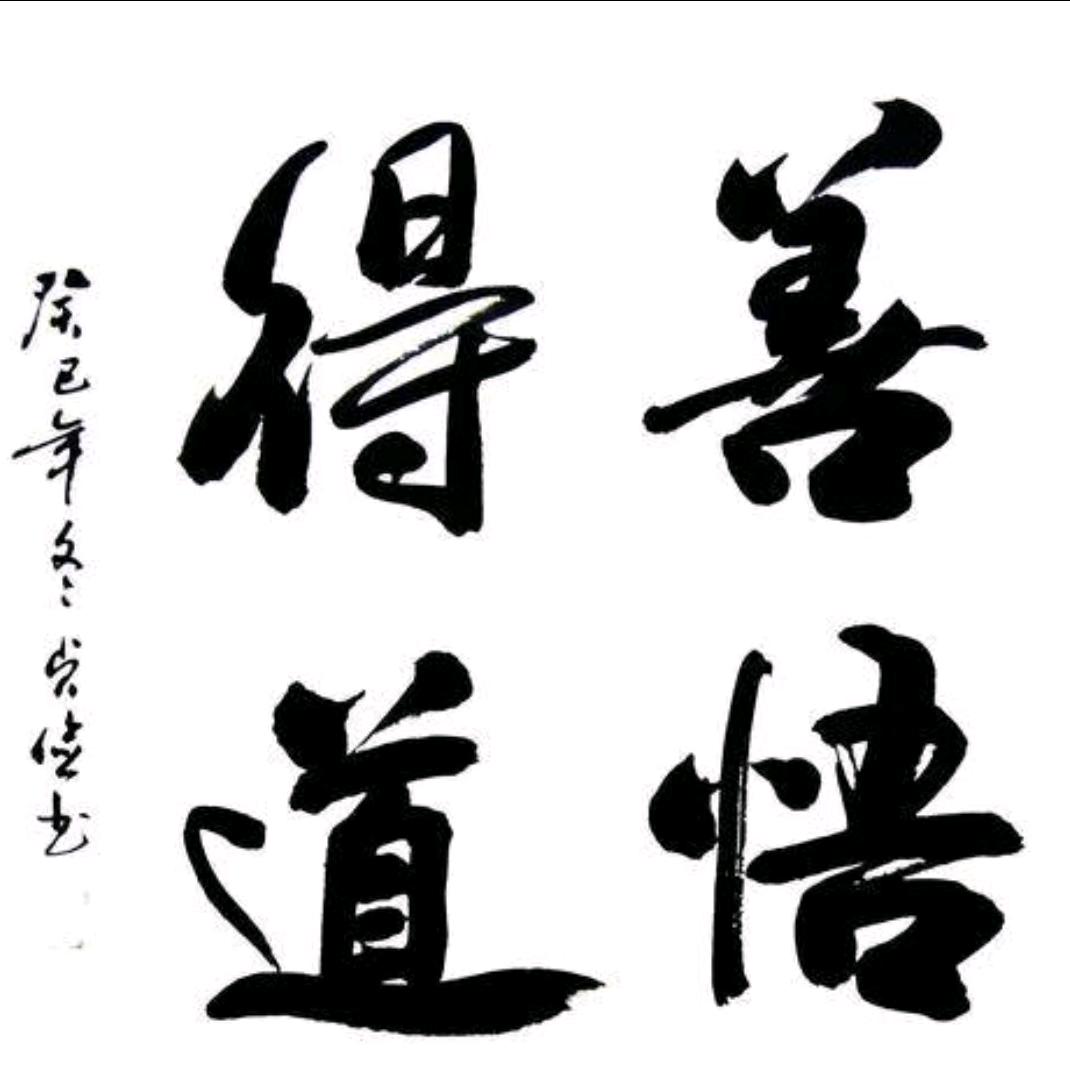 善悟
得道
癸巳年冬尚德书